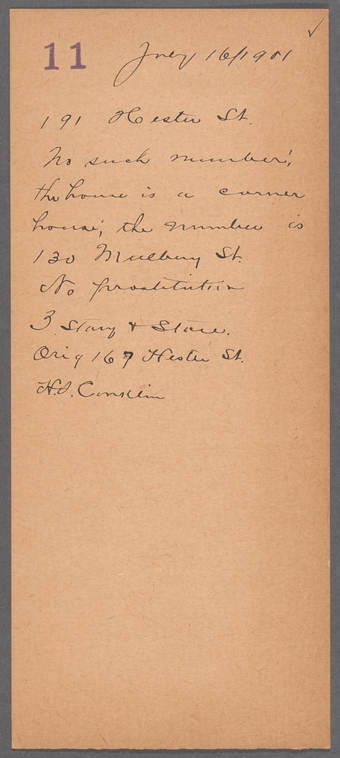 11 July 16/1901 ✓
191 Hester St.
No such number;
the house is a corner
house; the number is
130 Mulberry St.
No prostitution
3 Story & Store.
Orig 167 Hester St.
H.S. Conklin